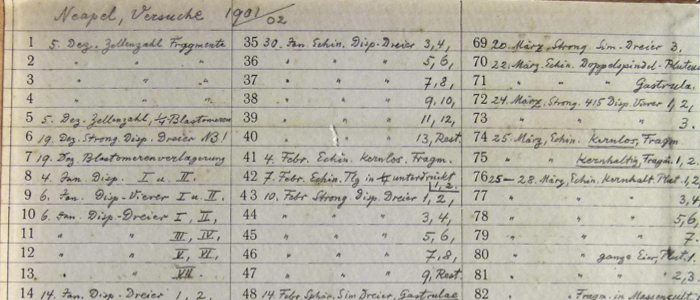 Neapel, Versuche 1901/02
1 5. Dez. Zellenzahl Fragmente
2 " " "
3 " " "
4 " " "
5 5. Dez. Zellenzahl, 1/2-Blastomeren
6 19. Dez. Strong. Disp. Dreier NB!
7 19. Dez. Blastomerenverlagerung
8 4. Jan. Disp. I u. II.
9 6. Jan. Disp-Vierer I u. II.
10 6. Jan. Disp-Dreier I, II,
11 " " III, IV,
12 " " V, VI,
13 " " VII.
14 14. Jan. Disp-Dreier 1, 2.
35 30. Jan. Echin. Disp-Dreier 3, 4,
36 " " " 5, 6,
37 " " " 7, 8,
38 " " " 9, 10,
39 " " " 11, 12,
40 " " " 13, Rest.
41 4. Febr. Echin. Kernlos. Fragm.
42 7. Febr. Echin. Tlg in unterdrückt
1, 2.
43 10. Febr Strong. Disp. Dreier 1, 2,
44 " " " 3, 4,
45 " " " 5, 6,
46 " " " 7, 8,
47 " " " 9, Rest
48 14. Febr Sphär. Sim Dreier, Gastrulae
69 20. März. Strong. Sim-Dreier 3.
70 22. März. Echin. Doppelspindel-Pluteus
71 " " " Gastrula.
72 24. März, Strong. 415 Disp. Vierer 1, 2,
73 " " " 3.
74 25. März, Echin. Kernlos, Fragm
75 " " Kernhaltig, Fragm. 1, 2.
76 25-28. März, Echin. Kernhalt. Plut. 1, 2
77 " " " 3, 4
78 " " " 5, 6
79 " " " 7
80 " " ganze Eier, Plut. 1.
81 " " " 2, 3
82 Fragm. in Massenkult